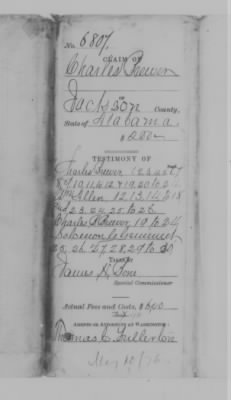 No. 6807.
CLAIM OF
Charles Brewer
OF
Jackson County,
State of Alabama
$200.00
TESTIMONY OF
Charles Brewer 1 2 3 4 5 6 7
8 9 10 11 & 12 & 19.20 to 24
Allen 12.13.14 to 18
23.24.25 to 26
Charles Brewer 19 to 24
Solomon
25.26.27.28.29 to 30
TAKEN BY
James H. Done
Special Commissioner
Actual Fees and Costs, $
AGENTS OR ATTORNEYS AT WASHINGTON:
Thomas C. Fullerton
May 10/76